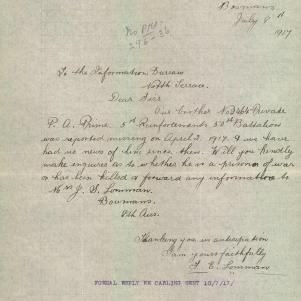 Bowmans
July 8th
1917
To the Information Bureau
North Terrace.
Dear Sirs
Our brother No 2464 Private
P. A. Prime 5th Reinforcements 50th Battalion
was reported missing on April 2, 1917. & we have
had no news of him since then. Will you kindly
make enquires as to whether he is a prisoner of war
or has been killed & forward any information to
Mrs J. S. Lomman.
Bowmans.
Sth Aus.
Thanking you in anticipation
I am yours faithfully
F. E. Lomman
FORMAL REPLY RE CABLING SENT 10/7/17/